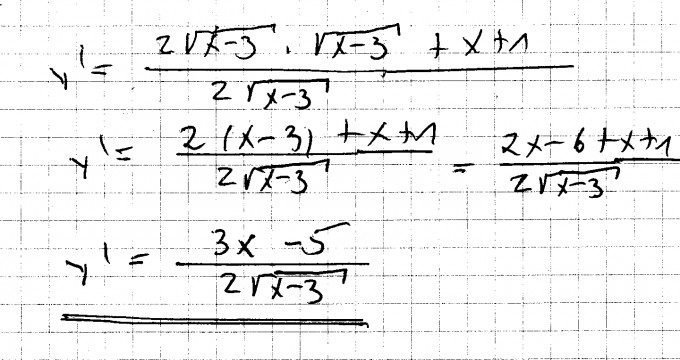 y' = (2√(x-3) · √(x-3) + x+1) / (2√(x-3))
y' = (2(x-3) + x+1) / (2√(x-3)) = (2x-6+x+1) / (2√(x-3))
y' = (3x -5) / (2√(x-3))